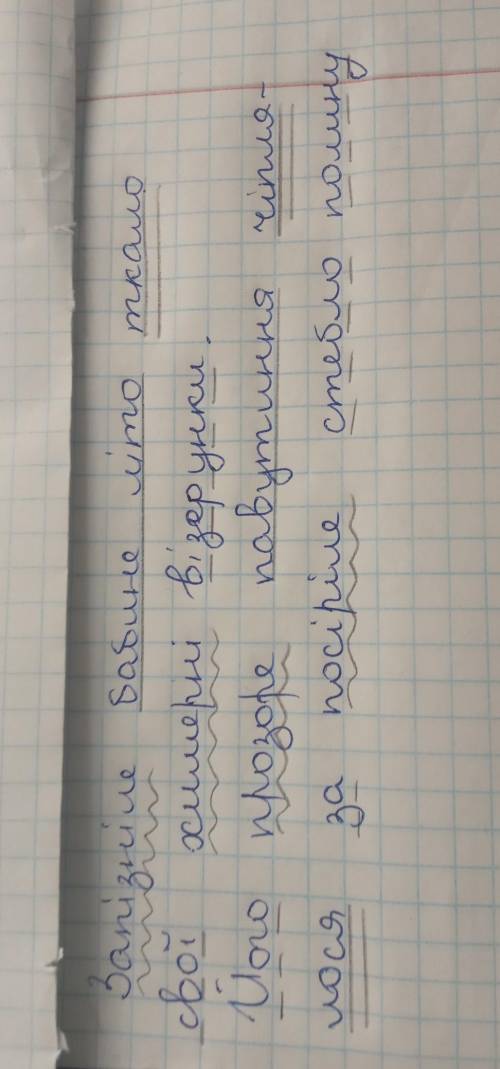 Запізніле бабине літо ткало
свої химерні візерунки.
Його прозоре павутиння чіпля-
лося за посіріле стебло полину